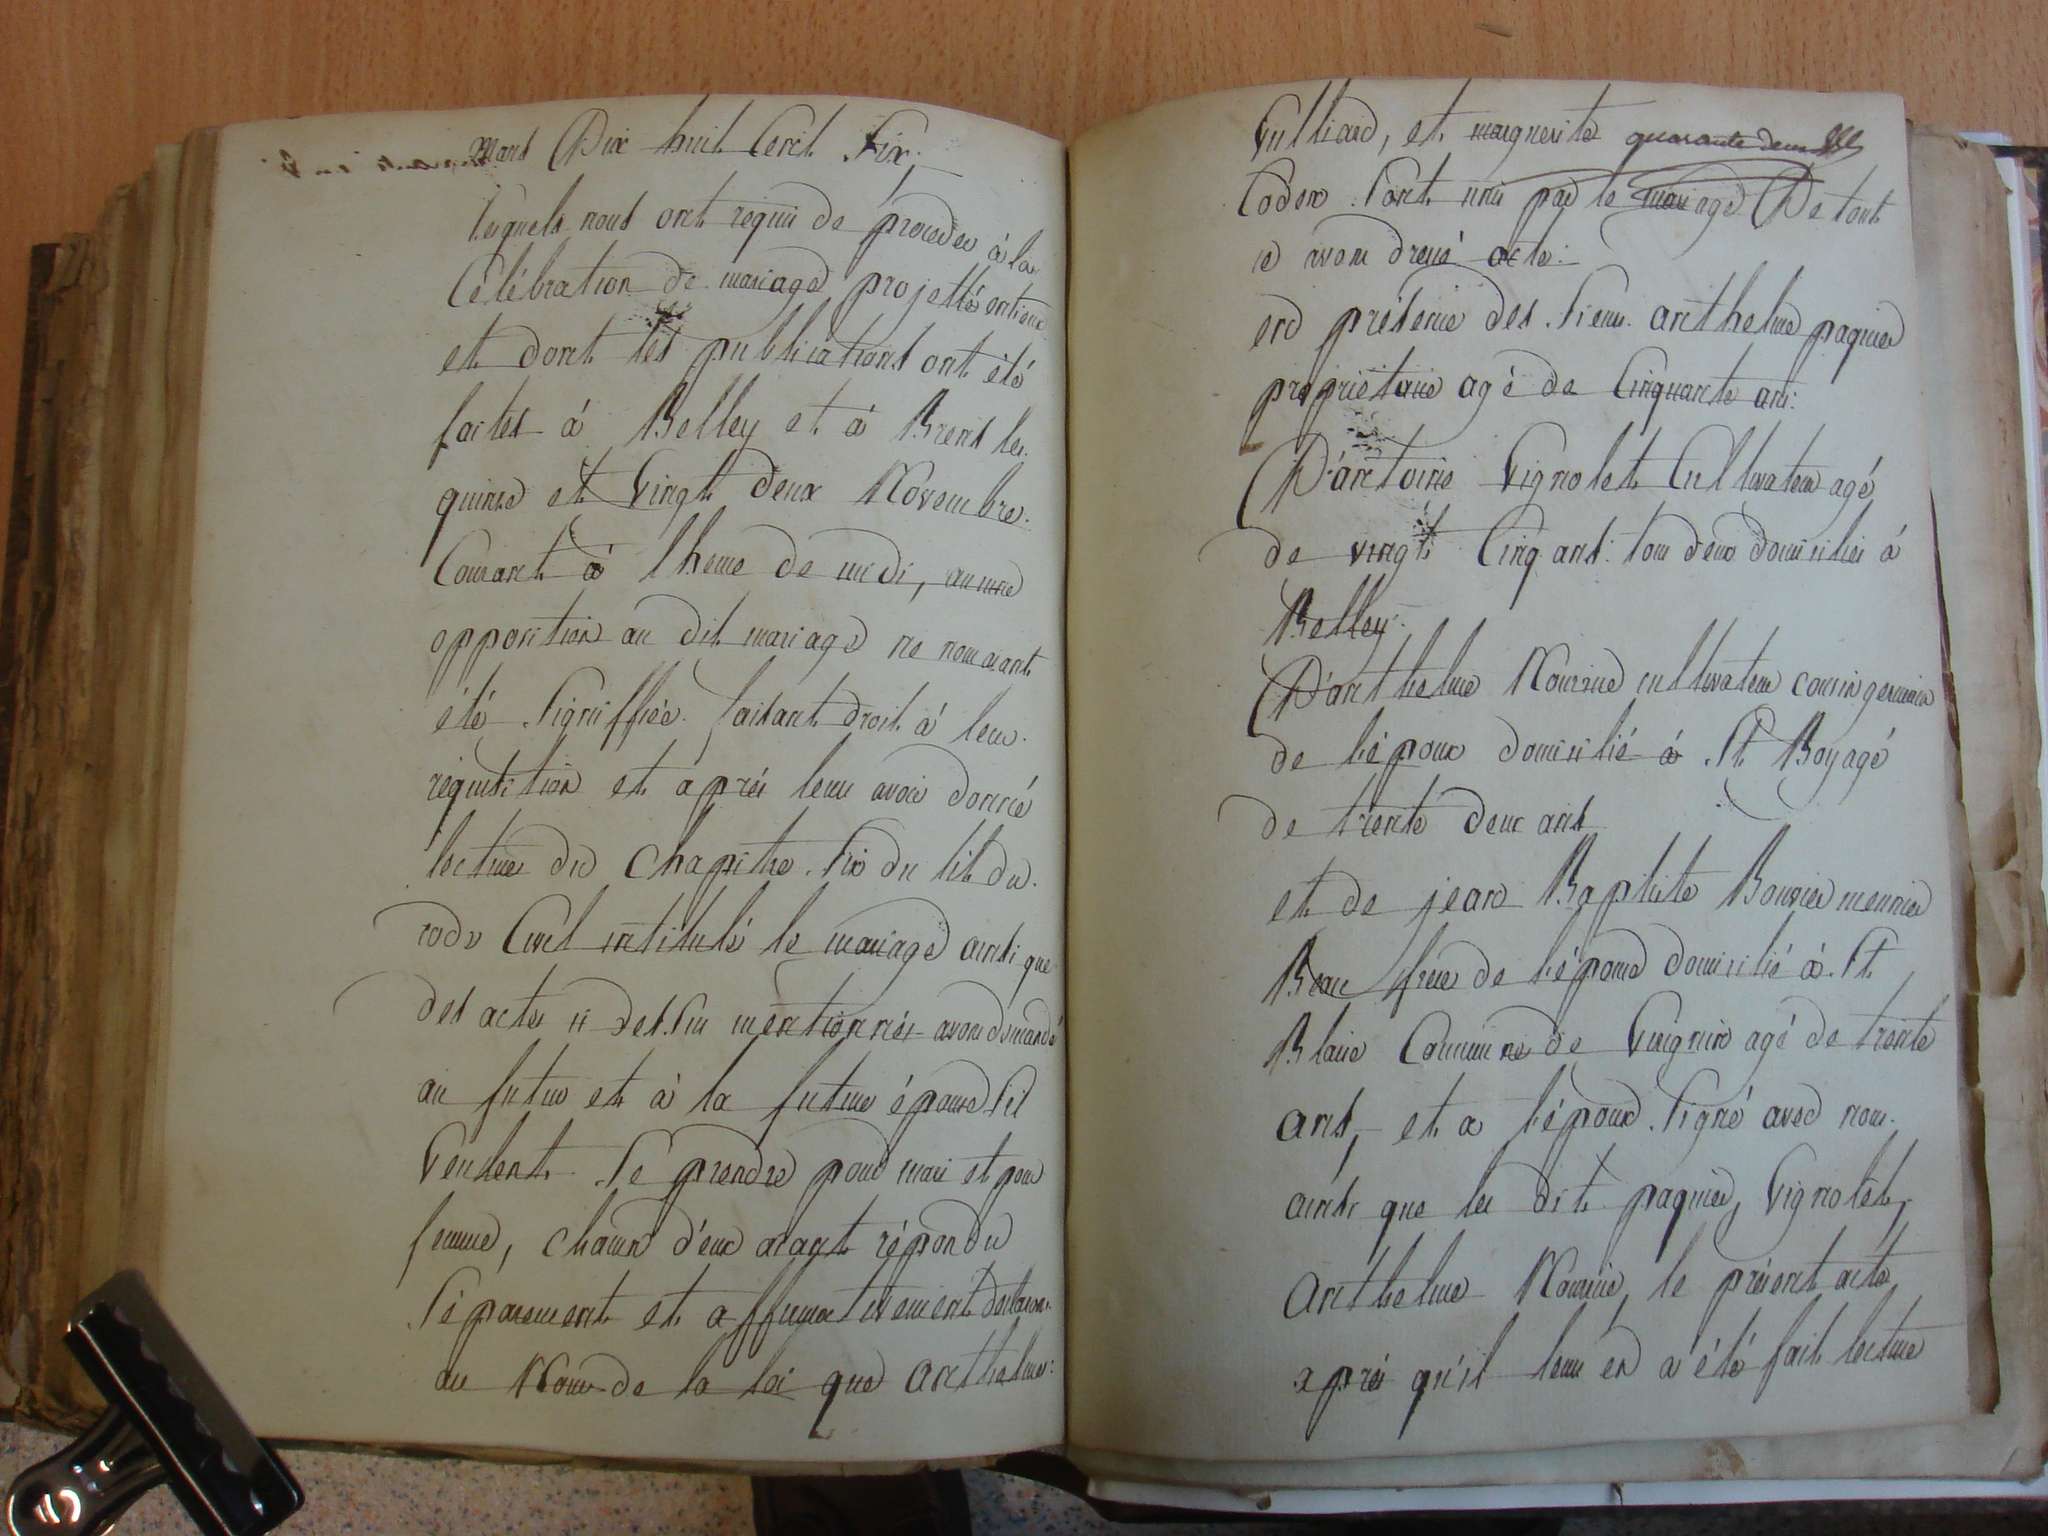 mars Dix huit Cent Six,
lesquels nous ont requis de proceder à la
Célébration de mariage projetté entreux
et dont les publications ont été
faites à Belley et à Brens les
quinze et Vingt deux Novembre
Courant à lheure de midi, aucune
opposition au dit mariage ne nous aiant
été Signiffiée. faisant droit à leur
réquisition et après leur avoir donné
lecture du Chapitre Six du tit du
code Civil intitulé le mariage ainsi que
des actes ci dessus mentionnés avons demandé
au futur et à la future épouse S'il
Veulent Se prendre pour mari et pour
femme, chacun d'eux aiant répondu
Séparement et affirmativement declarons
au Nom de la loi que Anthelme
Vulliard, et marguerite quarante deux
Coden Sont unis par le mariage De tout
ce avons dressé acte.
en présence des Sieurs anthelme paquier
propriétaire agé de Cinquante ans.
D'antoine Vignolet Cultivateur agé
de vingt Cinq ans. tous deux domiciliés à
Belley.
D'anthelme Mourrue cultivateur cousin germain
de l'époux domicilié à St Boyagé
de trente deux ans
et de jean Baptiste Bouvier meunier
Beau frere de l'épouse domicilié à St
Blaise Commune de Virignin agé de trente
ans, et a l'époux Signé avec nous
ainsi que les dits paquier, Vignolet,
Anthelme le présent acte
après qu'il leur en a été fait lecture